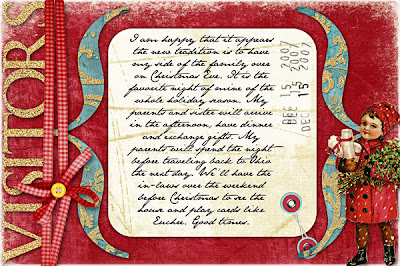 VISITORS
I am happy that it appears
the new tradition is to have
my side of the family over
on Christmas Eve. It is the
favorite night of mine of the
whole holiday season. My
parents and sister will arrive
in the afternoon, have dinner
and exchange gifts. My
parents will spend the night
before traveling back to Ohio
the next day. We'll have the
in-laws over the weekend
before Christmas to see the
house and play cards like
Euchre. Good times.
DEC 15 2007